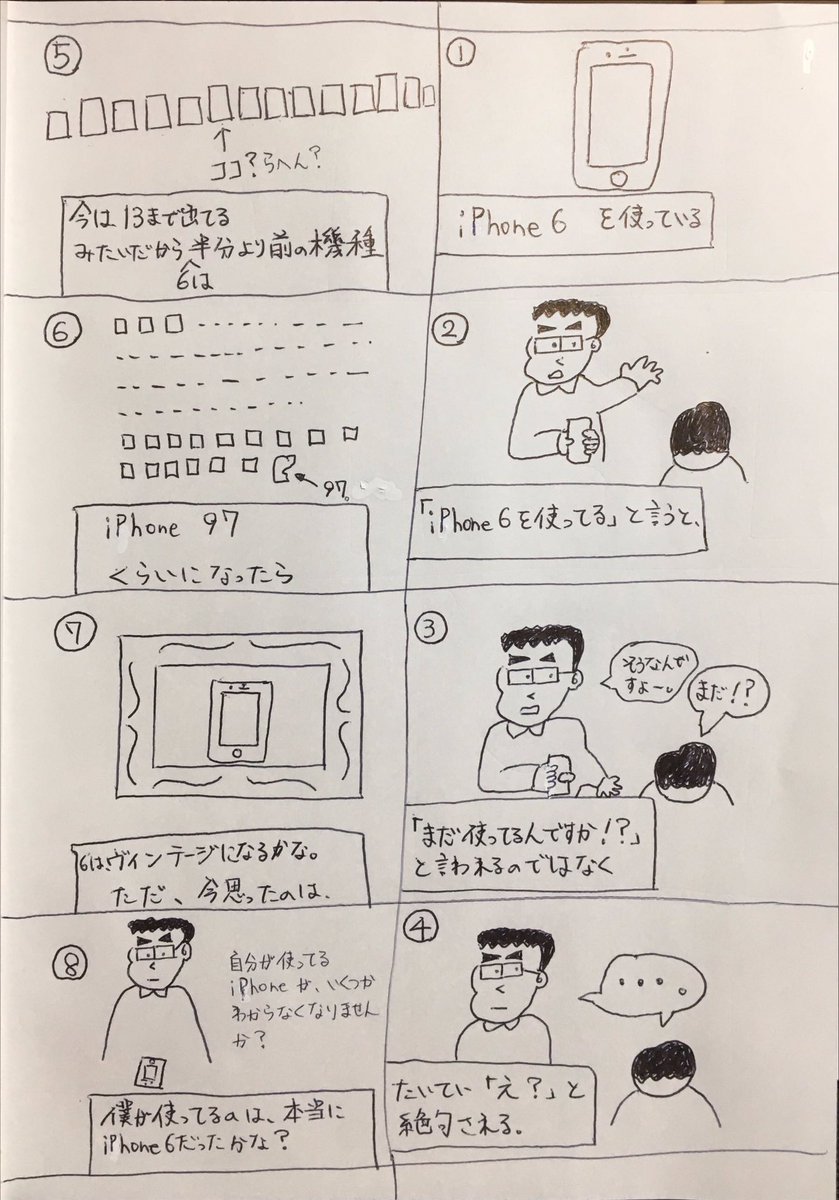 ①
iPhone 6 を使っている
②
「iPhone 6を使ってる」と言うと、
③
そうなんで
すよー。
まだ!?
「まだ使ってるんですか!?」
と言われるのではなく
④
・・・。
たいてい「え?」と
絶句される。
⑤
ココ?らへん?
今は13まで出てる
みたいだから半分より前の機種
6は
⑥
97。
iPhone 97
くらいになったら
⑦
6は、ヴィンテージになるかな。
ただ、今思ったのは、
⑧
自分が使ってる
iPhoneが、いくつか
わからなくなりません
か?
僕が使ってるのは、本当に
iPhone6だったかな?